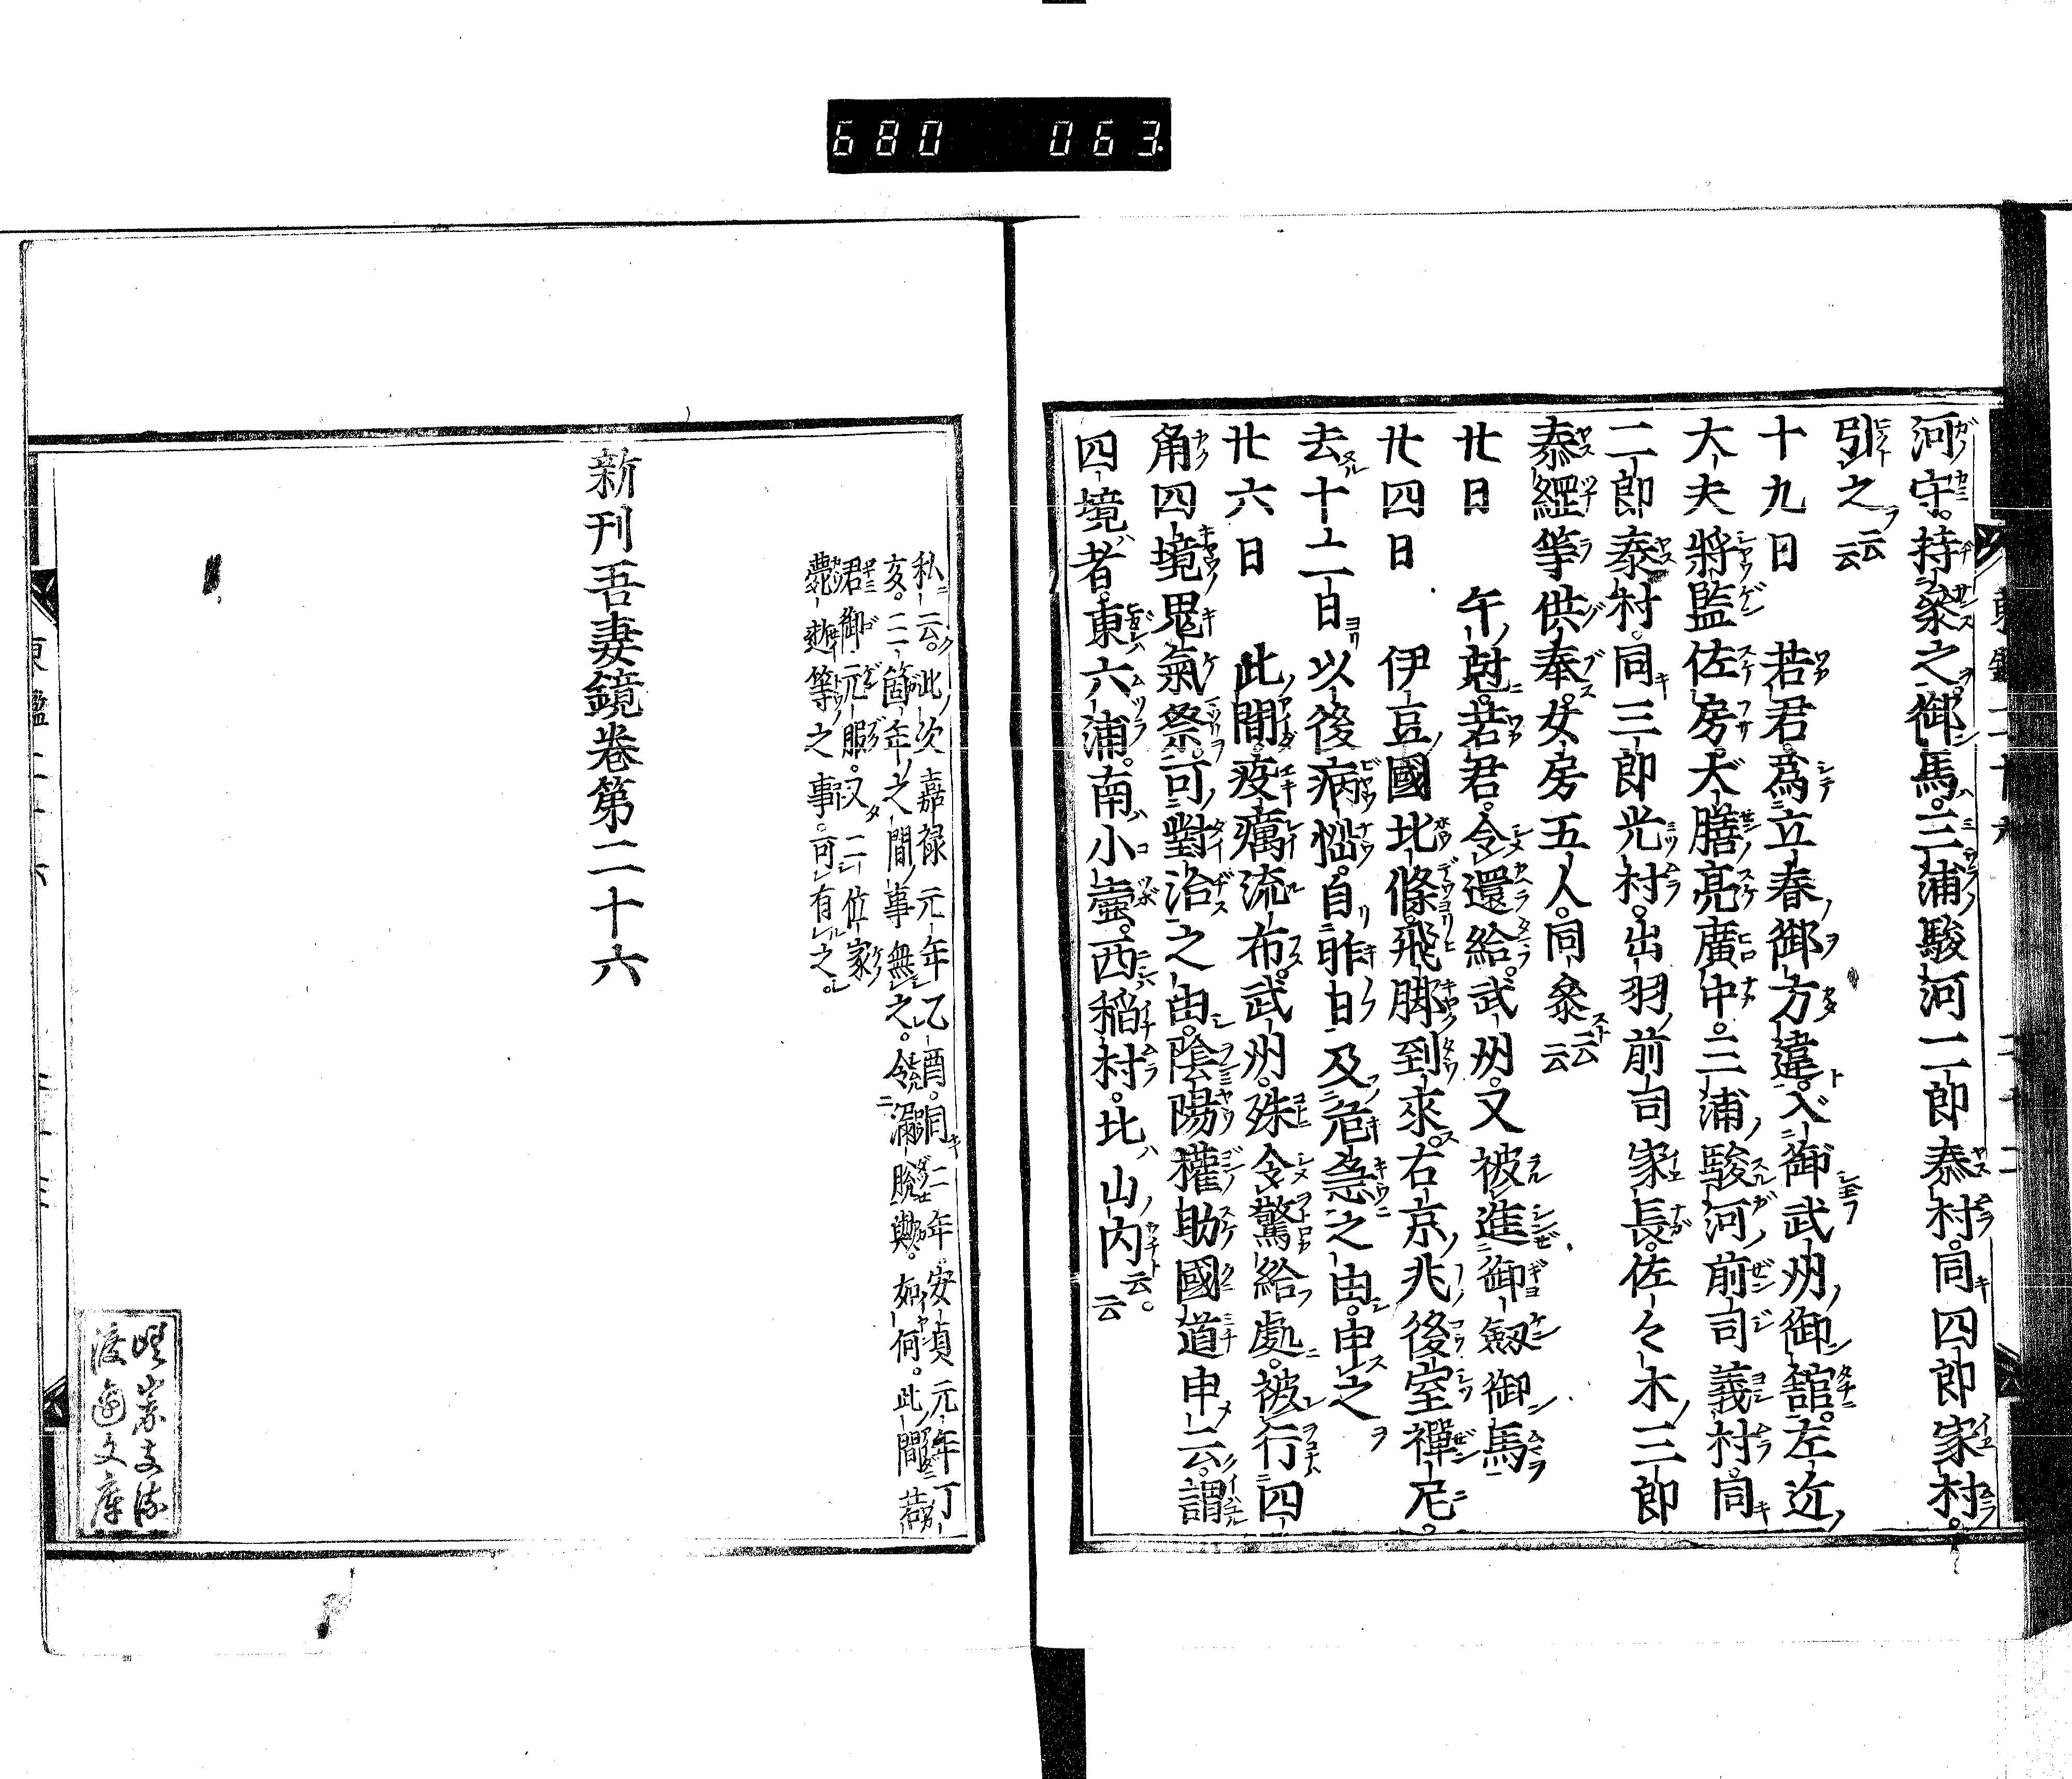 680 063
河守。持參之。御馬。三浦駿河二郎泰村。同四郎家村。
引之云云
十九日 若君。爲立春御方違。入御武州御舘。左近
大夫將監佐房。大膳亮廣中。三浦駿河前司義村。同
二郎泰村。同三郎光村。出羽前司家長。佐々木三郎
泰經等供奉。女房五人。同參云云
廿日 午尅。若君。令還給。武州。又被進御劔御馬
廿四日 伊豆國北條。飛脚到來。右京兆後室禪尼。
去十二日以後病惱。自昨日及危急之由。申之
廿六日 此間。疫癘流布。武州。殊令驚給處。被行四
角四境鬼氣祭。可對治之由。陰陽權助國道申云。謂
四境者。東六浦。南小壷。西稲村。北山内云云
私云。此次嘉禄元年乙酉。同二年。安貞元年丁
亥。三箇年之間事無之。令漏脱歟。如何。此間若
君御元服。又二位家
薨逝等之事。可有之。
新刊吾妻鏡巻第二十六